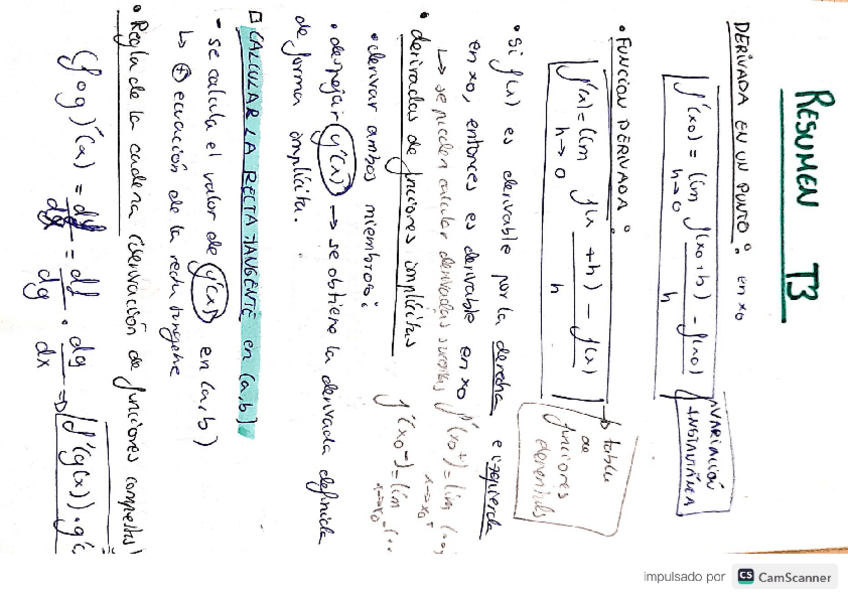 RESUMEN T3
DERIVADA EN UN PUNTO: en x0
f'(x0) = lím h→0 f(x0+h) - f(x0) / h
VARIACIÓN INSTANTÁNEA
• FUNCIÓN DERIVADA:
f'(x) = lím h→0 f(x+h) - f(x) / h
→ tabla de funciones elementales
• Si f(x) es derivable por la derecha e izquierda
en x0, entonces es derivable en x0
↳ se pueden calcular derivadas f'(x0+) = lím x→x0+ (...
f'(x0-) = lím x→x0- (...
• derivadas de funciones implícitas
• derivar ambos miembros:
• despejar y'(x) → se obtiene la derivada definida
de forma implícita.
□ CALCULAR LA RECTA TANGENTE en (a,b)
- se calcula el valor de y'(x) en (a,b)
↳ ⊕ ecuación de la recta tangente
• Regla de la cadena (derivación de funciones compuestas)
(f o g)'(x) = = df/dg · dg/dx ⇒ f'(g(x)) · g'(
impulsado por CS CamScanner